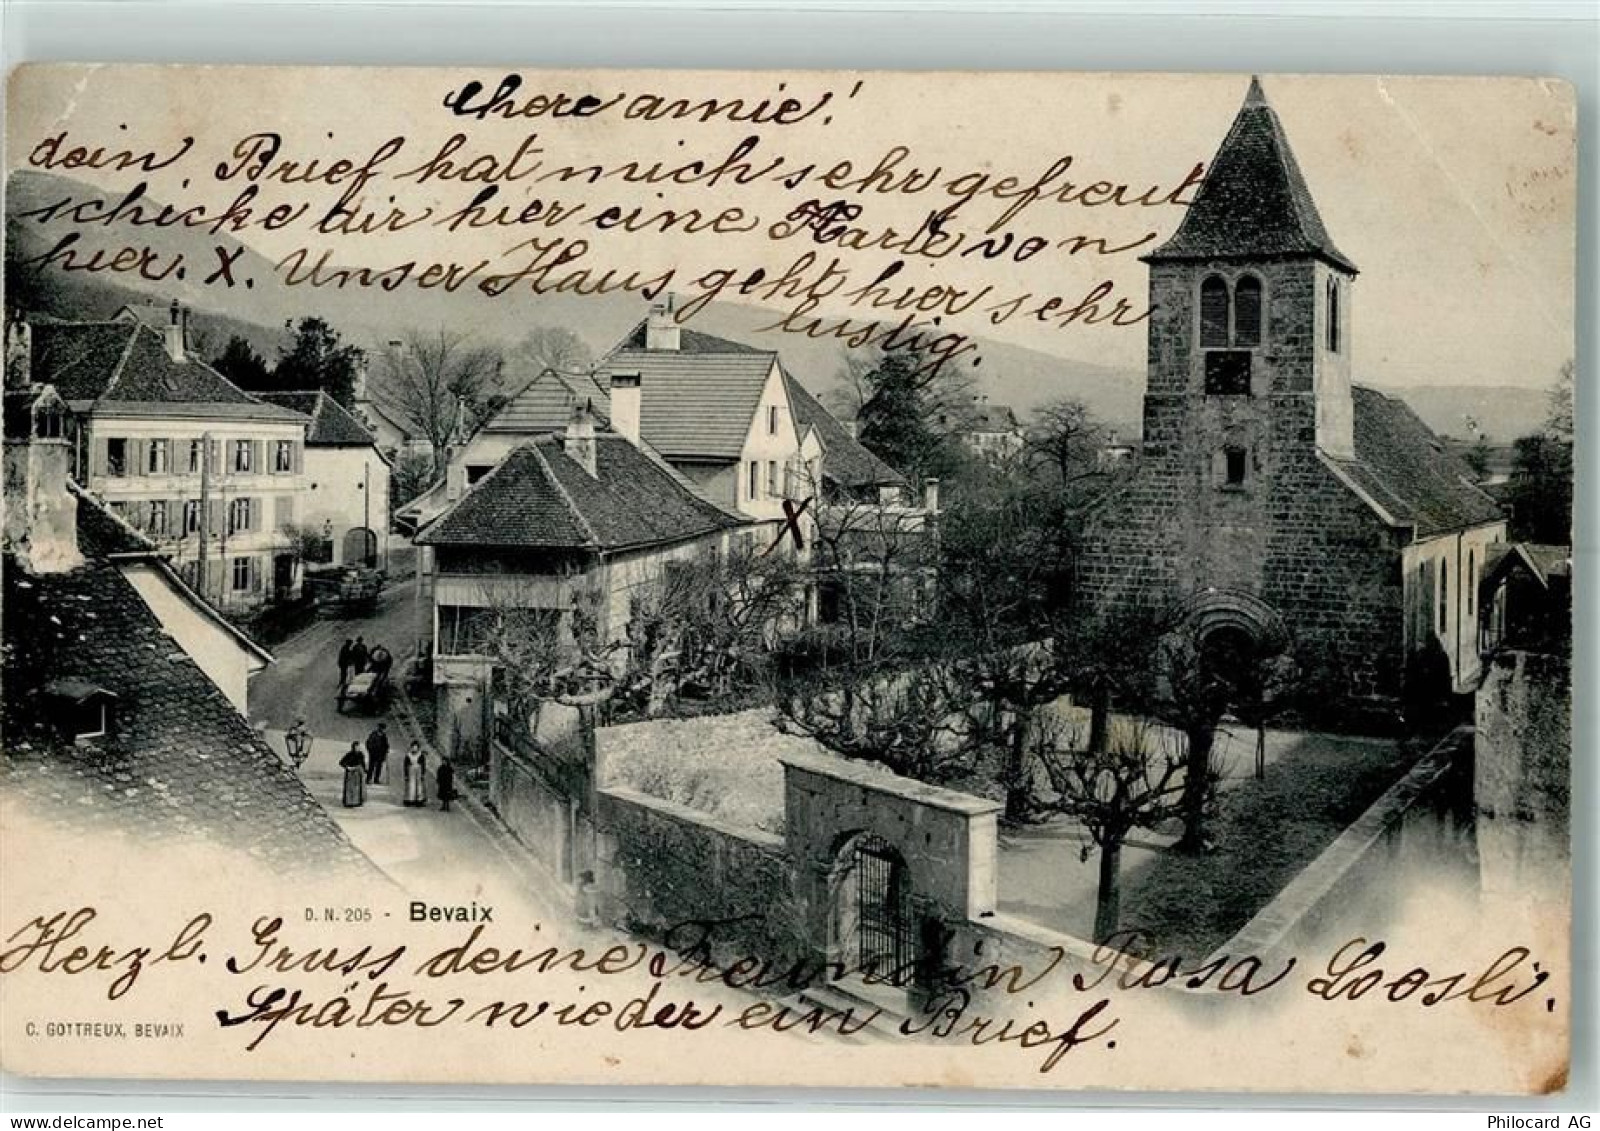 chere amie!
dein Brief hat mich sehr gefreut
schicke dir hier eine Karte von
hier. X. Unser Haus geht hier sehr
lustig.
X
D. N. 205 - Bevaix
Herzl. Gruss deine Freundin Rosa Loosli.
Später wieder ein Brief.
C. GOTTREUX, BEVAIX
Philocard AG